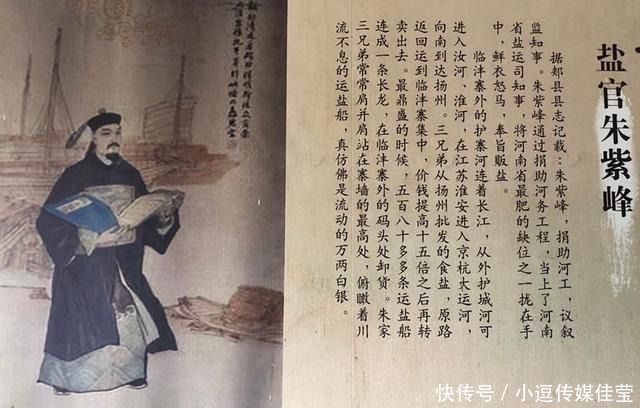 盐官朱紫峰
据郏县县志记载：朱紫峰，捐助河工，议叙
监知事。朱紫峰通过捐助河务工程，当上了河南
省盐运司知事，将河南省最肥的缺位之一拢在手
中，鲜衣怒马，奉旨贩盐。
临沣寨外的护寨河连着长江，从外护城河可
进入汝河、淮河，在江苏淮安进入京杭大运河，
向南到达扬州。三兄弟从扬州批发的食盐，原路
返回运到临沣寨集中，价钱提高十五倍之后再转
卖出去。最鼎盛的时候，五百八十多多条运盐船
连成一条长龙，在临沣寨外的码头处卸货。朱家
三兄弟常常肩并肩站在寨墙的最高处，俯瞰着川
流不息的运盐船，真仿佛是流动的万两白银。
快传号／小逗传媒佳莹